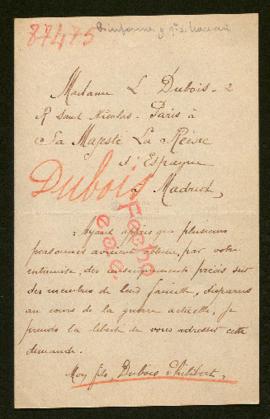 87475
Madame L Dubois - 2
R Saint Nicolas - Paris à
Sa Majesté La Reine
d'Espagne
à Madrid,
Dubois
Fecho
Ayant appris que plusieurs
personnes avaient obtenu, par votre
entremise, des renseignements précis sur
des membres de leur famille, disparus
au cours de la guerre actuelle, je
prends la liberté de vous adresser cette
demande.
Mon fils, Dubois Philibert,